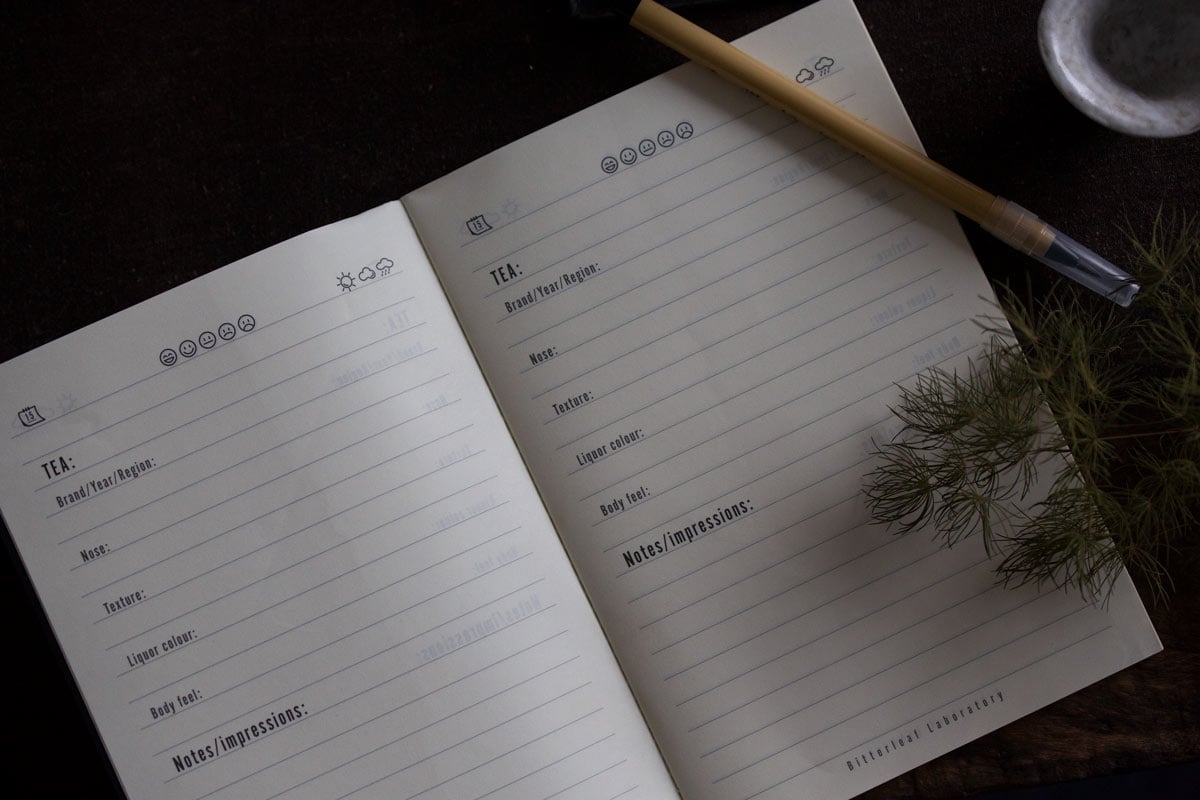 15
TEA:
Brand/Year/Region:
Nose:
Texture:
Liquor colour:
Body feel:
Notes/impressions:
15
TEA:
Brand/Year/Region:
Nose:
Texture:
Liquor colour:
Body feel:
Notes/impressions:
Bitterleaf Laboratory